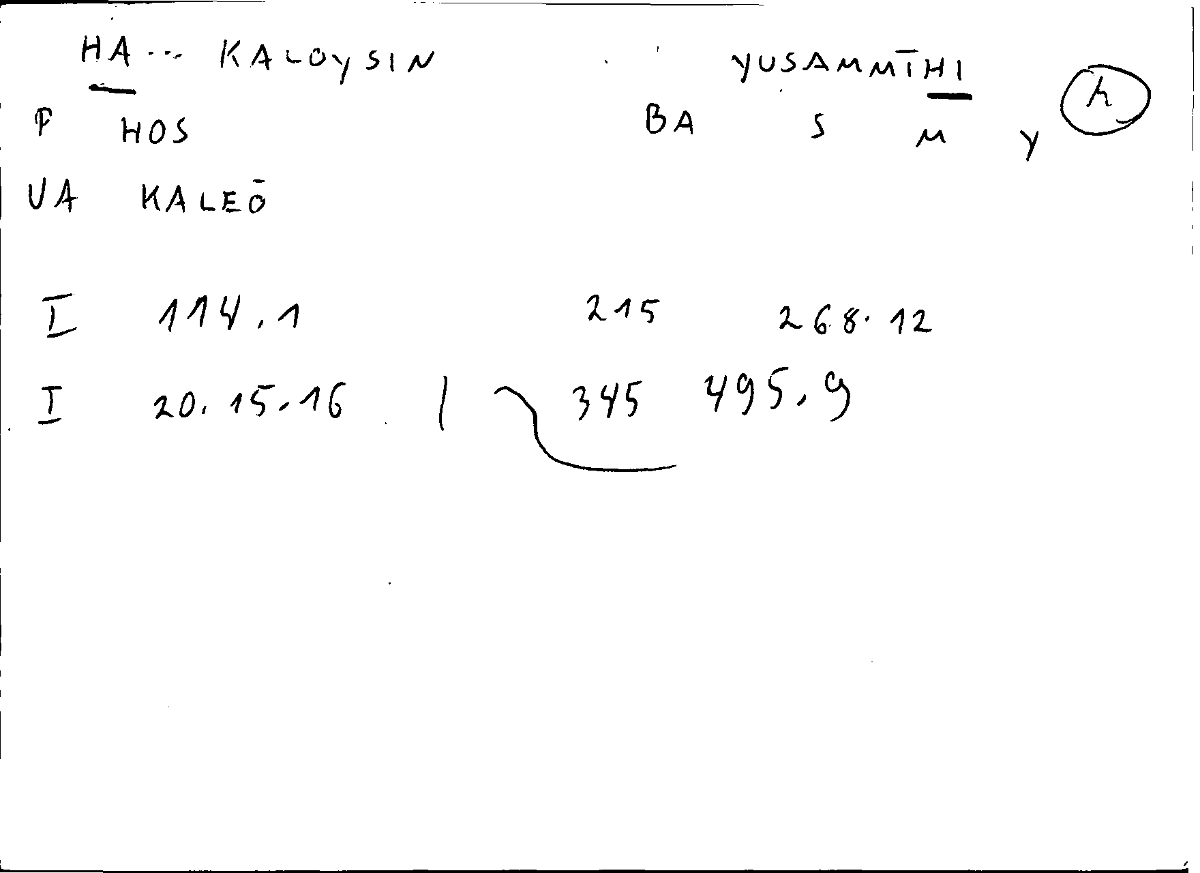 HA... KALOYSIN YUSAMMĪHI
P HOS BA S M Y h
VA KALEŌ
I 114.1 215 268.12
I 20.15.16 | 345 495.9